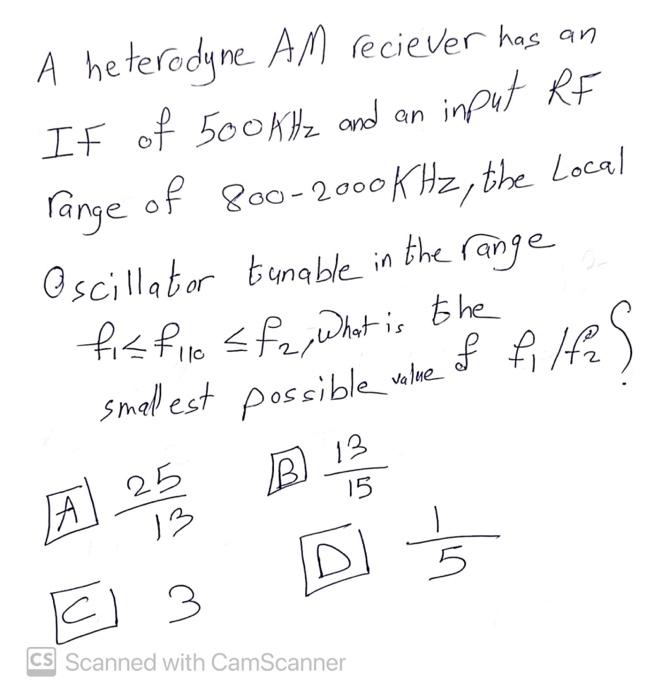 A heterodyne AM reciever has an
IF of 500KHz and an input RF
range of 800-2000KHz, the Local
Oscillator tunable in the range
f1 ≤ fl/o ≤ f2, What is the
smallest possible value of f1/f2?
A 25/13
B 13/15
C 3
D 1/5
CS Scanned with CamScanner